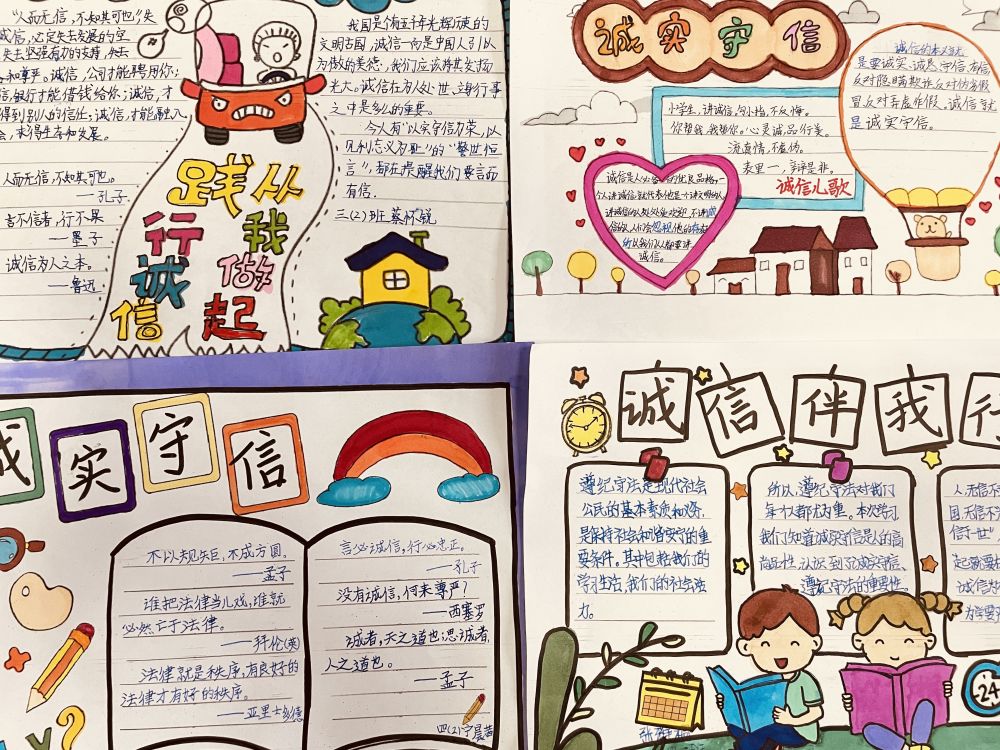 "人而无信,不知其可也"失
诚信,必定失去发展的空
失去坚强有力的支持,失去
和尊严。诚信,公司才能聘用你;
信,银行才能借钱给你;诚信,才
得到别人的信任;诚信,才能融入
会,求得生存和发展。
人而无信,不知其可也。
——孔子
言不信者,行不果
——墨子
诚信为人之本。
——鲁迅
践从
行我
诚做
信起
我国是个有五千年光辉历史的
文明古国,诚信一向是中国人引以
为傲的美德,我们应该将其发扬
光大。诚信在为人处世、
之中是多么的重要。
今人有"以实守信为荣,以
见利忘义为耻"的"警世恒
言",都在提醒我们要言而
有信。
三(2)班
诚实守信
小学生,讲诚信,勾小指,不反悔。
你帮我,我帮你。心灵诚,品行美。
流真情,不虚伪。
表里一,辛辟是非。
诚信儿歌
诚信是人必备的优良品格,一
个人讲诚信,就代表他是个讲文明的人。
讲诚信的人处处受欢迎,不讲诚
信的人人们会忽视他的存在
所以我们人人都要讲
诚信。
诚信的本义就
是要诚实、诚恳、守信、有信,
反对隐瞒欺诈、反对伪劣假
冒、反对弄虚作假。诚信就
是诚实守信。
诚实守信
不以规矩,不成方圆。
——孟子
谁把法律当儿戏,谁就
必然亡于法律。
——拜伦(英)
法律就是秩序,有良好的
法律才有好的秩序。
——亚里士多德
言必诚信,行必忠正。
——孔子
没有诚信,何来尊严?
——西塞罗
诚者,天之道也;思诚者,
人之道也。
——孟子
四(2)宁晨
诚信伴我行
遵纪守法是现代社会
公民的基本素质和义务,
是保持社会和谐安宁的重
要条件。其中包括我们的
学习生活,我们的社会活
力。
所以,遵纪守法对我们
每个人都尤为重。本次学习
我们知道诚实守信是人的高
尚品性,认识到了诚实守信、
遵纪守法的重要性。
人,无信不
国无信不
信于世"
起就要
诚信为
为学
24